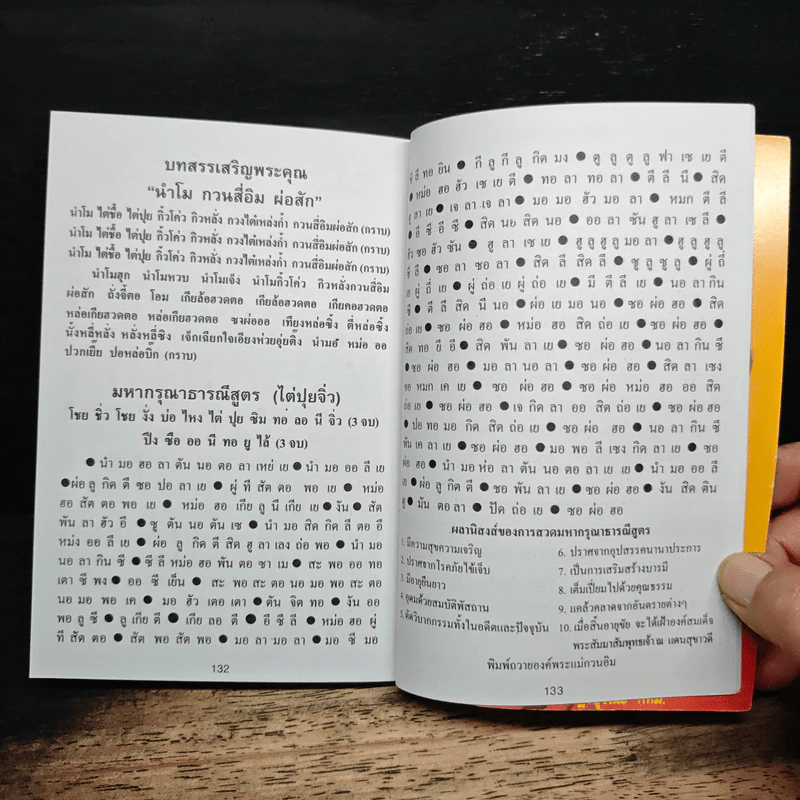 บทสรรเสริญพระคุณ
“นำโม กวนสี่อิม ผ่อสัก”
นำโม ไต่ชื้อ ไต่ปุย กิ้วโค่ว กิวหลั่ง กวงไต๋เหล่งก้ำ กวนสี่อิมผ่อสัก (กราบ)
นำโม ไต่ชื้อ ไต่ปุย กิ้วโค่ว กิวหลั่ง กวงไต๋เหล่งก้ำ กวนสี่อิมผ่อสัก (กราบ)
นำโม ไต่ชื้อ ไต่ปุย กิ้วโค่ว กิวหลั่ง กวงไต๋เหล่งก้ำ กวนสี่อิมผ่อสัก (กราบ)
นำโมฮูก นำโมหวบ นำโมเจ็ง นำโมกิ้วโค่ว กิวหลั่งกวนสี่อิม
ผ่อสัก ถั่งจี้ตอ โอม เกียล้อฮวดตอ เกียล้อฮวดตอ เกียคอฮวดตอ
หล่อเกียฮวดตอ หล่อเกียฮวดตอ ซงผ่อออ เทียงหล่อซิ้ง ตี่หล่อซิ้ง
นั้งหลี่หลั่ง หลั่งหลี่ซิง เจ็กเฉียกไจเอียงห่วยอุ่ยติ๊ง นำมอ๋ หม่อ ออ
ปวกเยี้ย ปอหล่อบิ๊ก (กราบ)
มหากรุณาธารณีสูตร (ไต่ปุยจิ่ว)
โชย ชิ่ว โชย งั่ง บ่อ ไหง ไต่ ปุย ซิม ทอ ลอ นี จิ่ว (3 จบ)
ปึง ซือ ออ นี ทอ ยู ไล้ (3 จบ)
● นำ มอ ฮอ ลา ตัน นอ ตอ ลา เหย่ เย ● นำ มอ ออ ลี เย
●ผ่อ ลู กิด ตี ชอ ปอ ลา เย ● ผู่ ที สัต ตอ พอ เย ● หม่อ
ฮอ สัต ตอ พอ เย ● หม่อ ฮอ เกีย ลู นี เกีย เย ●งัน ● สัต
พัน ลา ฮัว อี ● ซู ตัน นอ ตัน เซ ● นำ มอ สิด กิด ลี ตอ อี
หม่ง ออ ลี เย ● ผ่อ ลู กิด ตี สิด ฮู ลา เลง ถ่อ พอ ● นำ มอ
นอ ลา กิน ซี ● ซี ลี หม่อ ฮอ พัน ตอ ซา เม ● สะ พอ ออ ทอ
เตา ซี พง ● ออ ซี เย็น ● สะ พอ สะ ตอ นอ มอ พอ สะ ตอ
นอ มอ พอ เค ● มอ ฮัว เตอ เตา ● ตัน จิต ทอ ● งัน ออ
พอ ลู ซี ● ลู เกีย ตี ● เกีย ลอ ตี ● อี ซี ลี ● หม่อ ฮอ ผู่
ที สัต ตอ ● สัต พอ สัต พอ ● มอ ลา มอ ลา ● มอ ซี มอ
132
ซี ลี ทอ ยิน ● กี ลู กี ลู กิด มง ● ตู ลู ตู ลู ฟา เซ เย ตี
●หม่อ ฮอ ฮัว เซ เย ตี ● ทอ ลา ทอ ลา ● ตี ลี นี ● สิด
ลา เย ● เจ ลา เจ ลา ● มอ มอ ฮัว มอ ลา ● หมก ตี ลี
● อี ซี อี ซี ● สิด นอ สิด นอ ● ออ ลา ซัน ฮู ลา เซ ลี ●
ฮัว ซอ ฮัว ซัน ● ฮู ลา เซ เย ● ฮู ลู ฮู ลู มอ ลา ● ฮู ลู ฮู ลู
ซี ลี ● ซอ ลา ซอ ลา ● สิด ลี สิด ลี ● ซู ลู ซู ลู ● ผู่ ถี่
เย ผู่ ถี่ เย ● ผู่ ถ่อ เย ผู่ ถ่อ เย ● มี ตี ลี เย ● นอ ลา กิน
ซี ● ตี ลี สิด นี นอ ● ผ่อ เย มอ นอ ● ซอ ผ่อ ฮอ ● สิด
ถ่อ เย ● ซอ ผ่อ ฮอ ● หม่อ ฮอ สิด ถ่อ เย ● ซอ ผ่อ ฮอ ●
สิด ทอ ยี อี ● สิด พัน ลา เย ● ซอ ผ่อ ฮอ ● นอ ลา กิน ซี
●ซอ ผ่อ ฮอ ● มอ ลา นอ ลา ● ซอ ผ่อ ฮอ ● สิด ลา เซง
ออ หมก เค เย ● ซอ ผ่อ ฮอ ● ซอ ผ่อ หม่อ ฮอ ออ สิด
ถ่อ เย ● ซอ ผ่อ ฮอ ● เจ กิด ลา ออ สิด ถ่อ เย ● ซอ ผ่อ ฮอ
● ปอ ทอ มอ กิด สิด ถ่อ เย ● ซอ ผ่อ ฮอ ● นอ ลา กิน ซี
พัน เค ลา เย ● ซอ ผ่อ ฮอ ● มอ พอ ลี เซง กิด ลา เย ● ซอ
ผ่อ ฮอ ● นำ มอ ห่อ ลา ตัน นอ ตอ ลา เย เย ● นำ มอ ออ ลี
เย ●ผ่อ ลู กิด ตี ● ชอ พัน ลา เย ● ซอ ผ่อ ฮอ ● งัน สิด ติน
ตู ● มัน ตอ ลา ● ปัด ถ่อ เย ● ซอ ผ่อ ฮอ
ผลานิสงส์ของการสวดมหากรุณาธารณีสูตร
1. มีความสุขความเจริญ
2. ปราศจากโรคภัยไข้เจ็บ
3. มีอายุยืนยาว
4. อุดมด้วยสมบัติพัสถาน
5. ตัดวิบากกรรมทั้งในอดีตและปัจจุบัน
6. ปราศจากอุปสรรคนานาประการ
7. เป็นการเสริมสร้างบารมี
8. เต็มเปี่ยมไปด้วยคุณธรรม
9. แคล้วคลาดจากอันตรายต่างๆ
10. เมื่อสิ้นอายุขัย จะได้เฝ้าองค์สมเด็จ
พระสัมมาสัมพุทธเจ้า ณ แดนสุขาวดี
พิมพ์ถวายองค์พระแม่กวนอิม
133